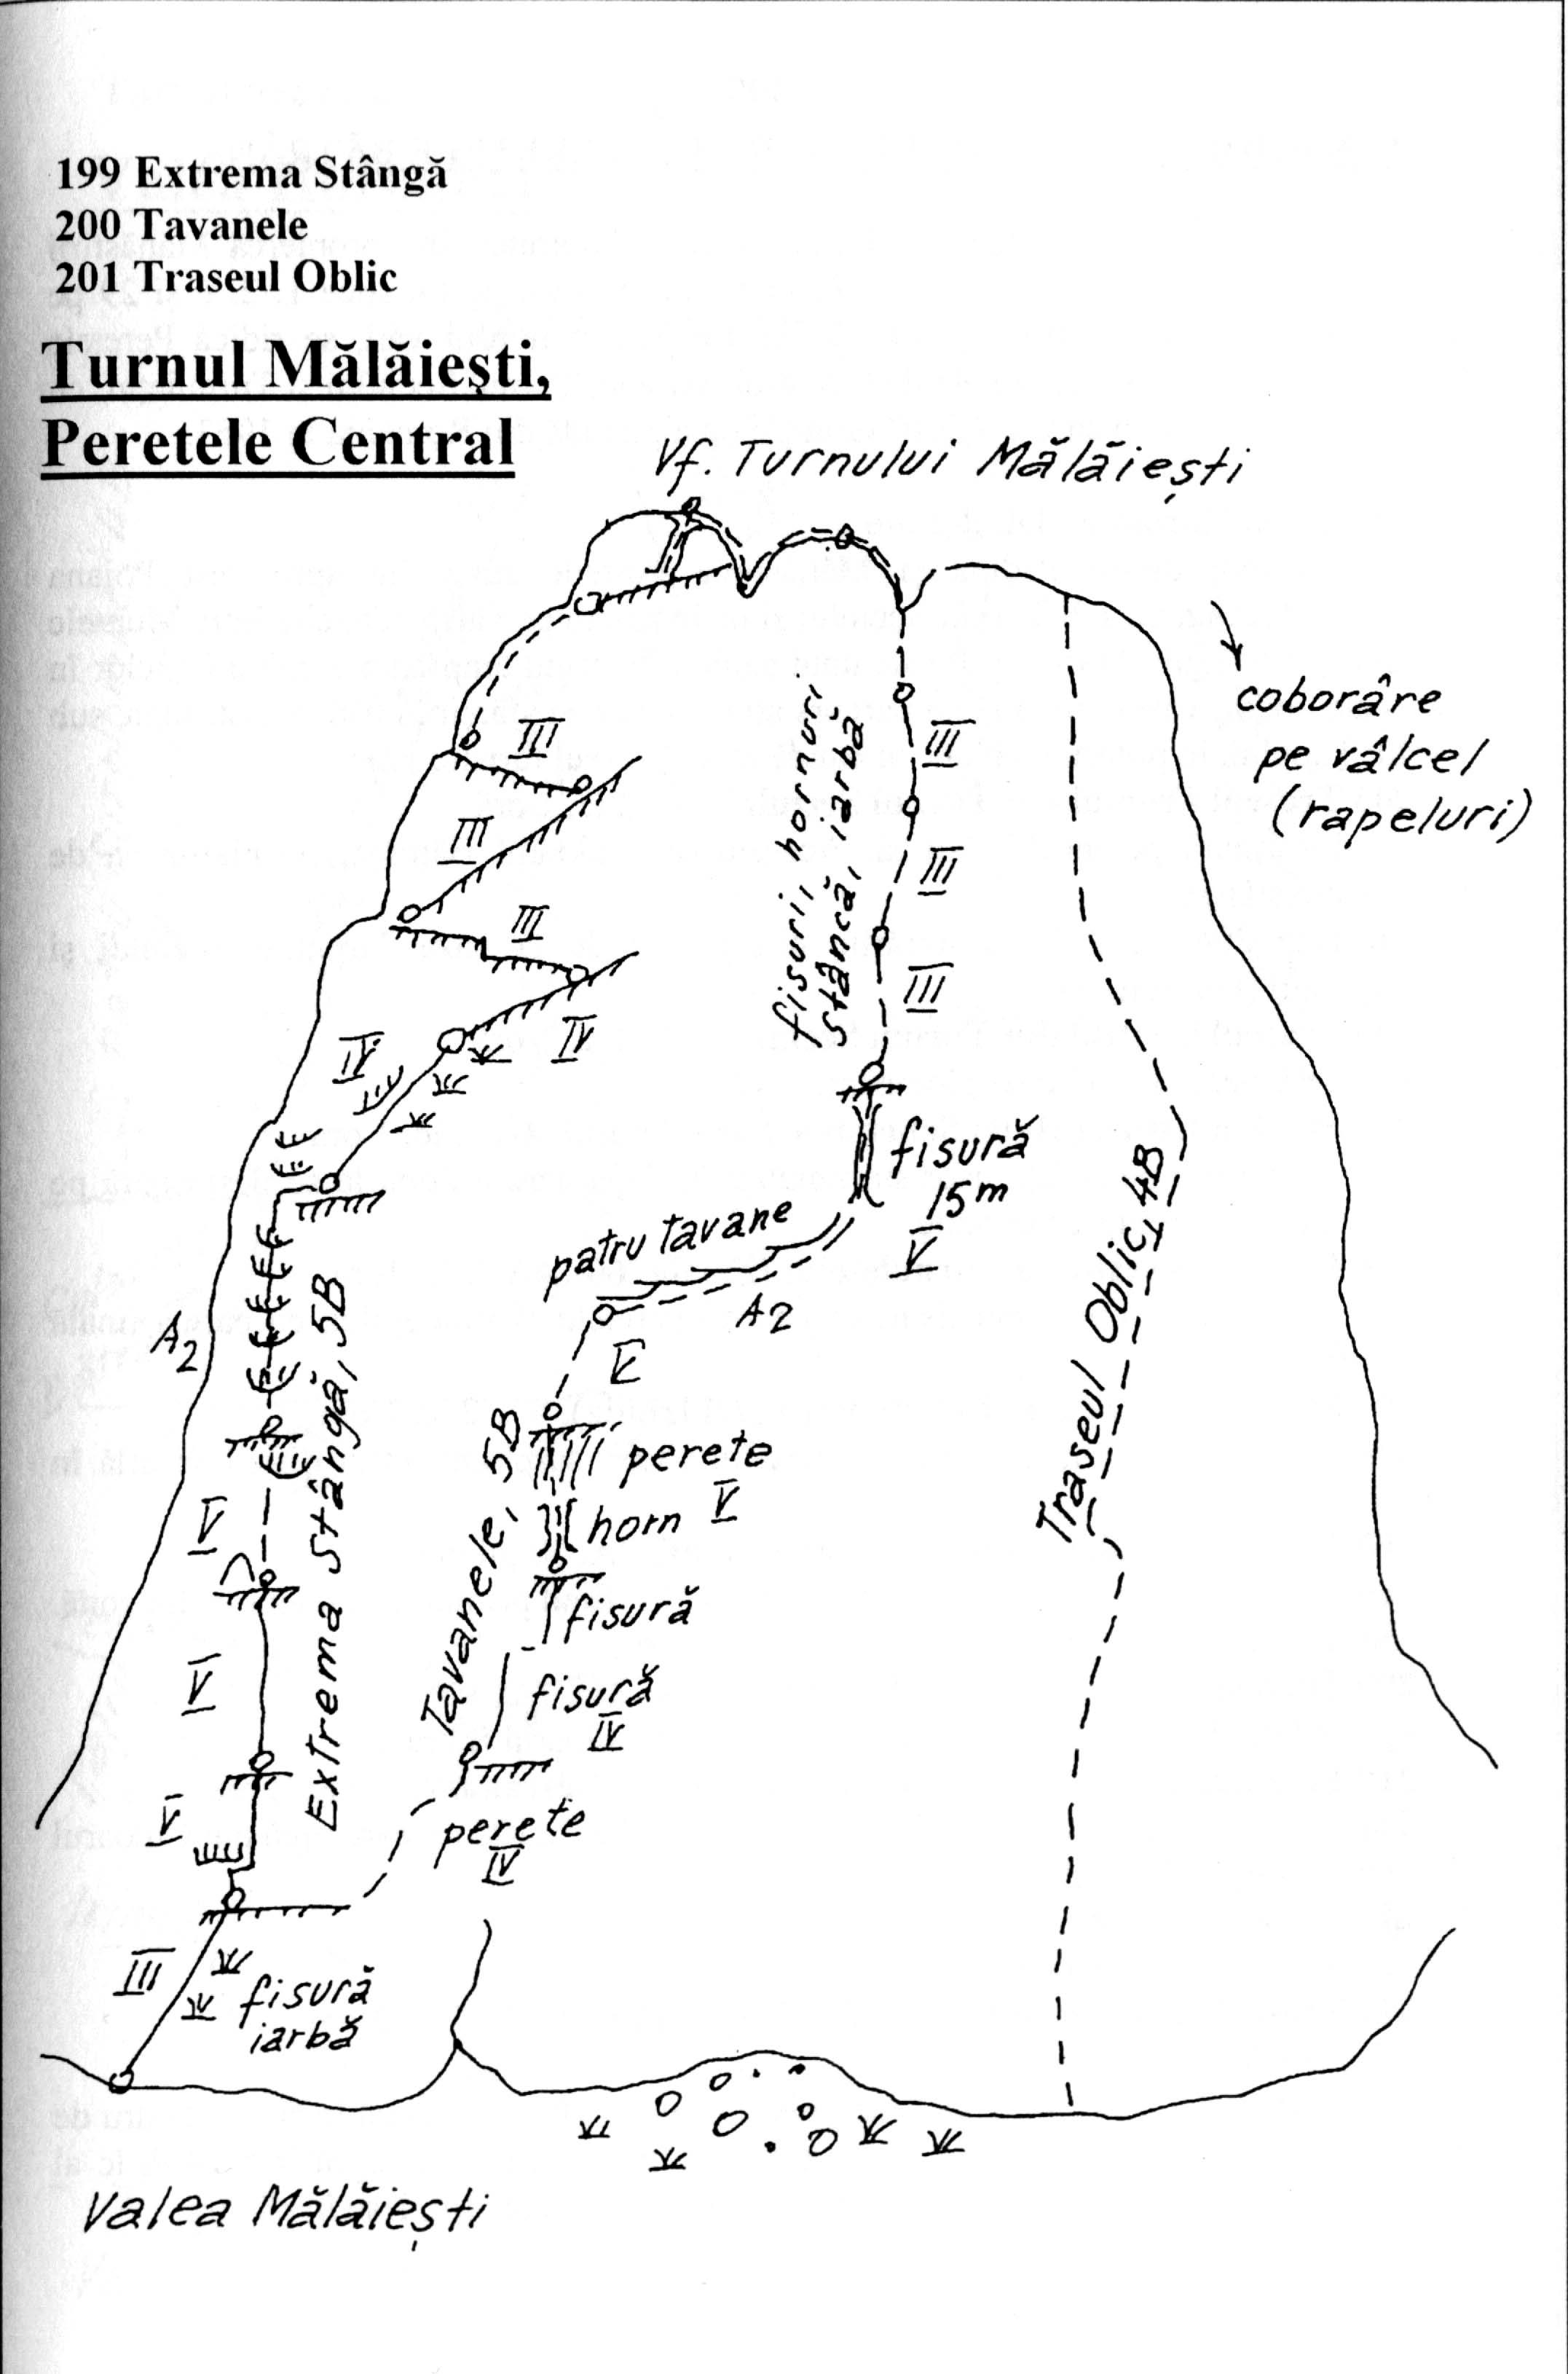 199 Extrema Stângă
200 Tavanele
201 Traseul Oblic
Turnul Mălăiești,
Peretele Central
Vf. Turnului Mălăiești
coborâre
pe vâlcel
(rapeluri)
III
III
III
IV
IV
fisuri, hornuri
stâncă, iarbă
III
III
III
fisură
15m
V
patru tavane
A2
A2
Extrema Stângă, 5B
V
V
V
Tavanele, 5B
perete
V
horn
fisură
fisură
IV
perete
IV
Traseul Oblic, 4B
III
fisură
iarbă
Valea Mălăiești